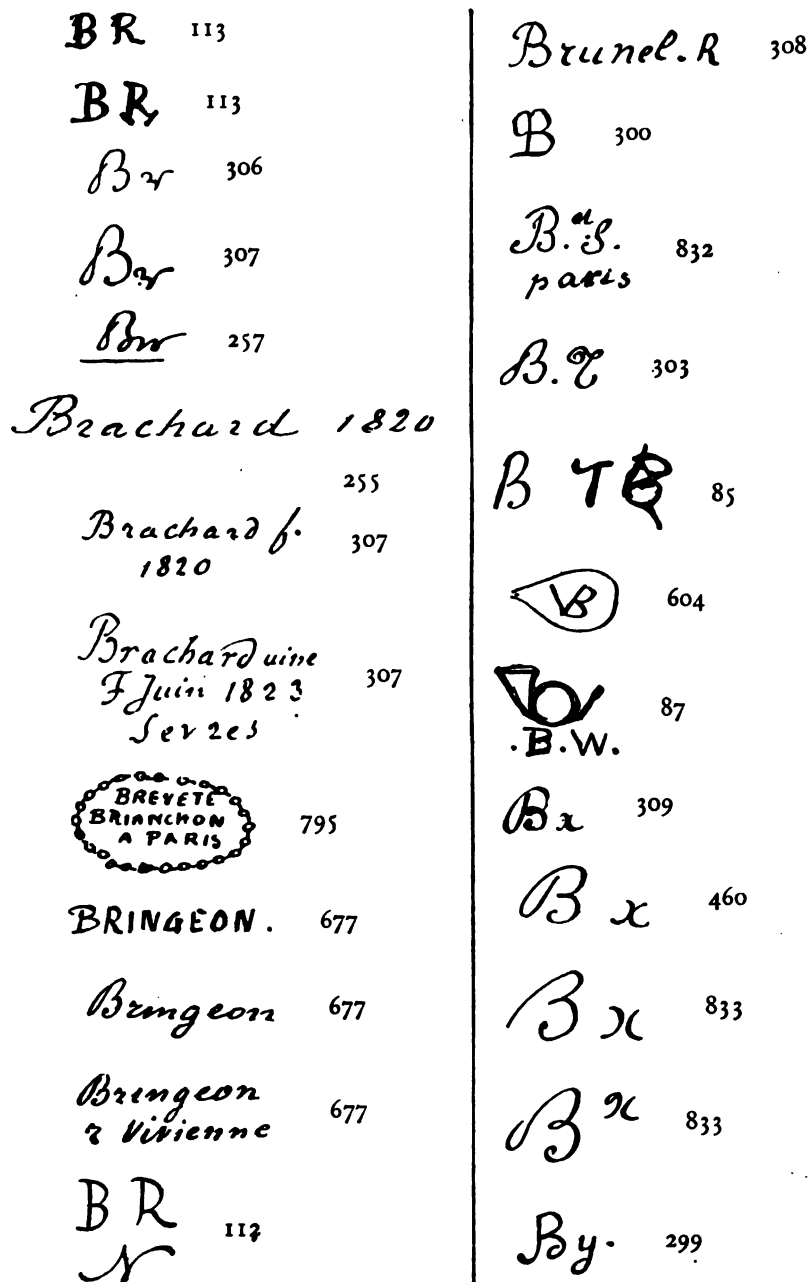 BR 113
BR 113
Br 306
Br 307
Br 257
Brachard 1820
255
Brachard f. 307
1820
Brachard aine
F Juin 1823 307
Sevres
BREVETE
BRIANCHON 795
A PARIS
BRINGEON. 677
Bringeon 677
Bringeon
r Vivienne 677
BR
N 112
Brunel. R 308
B 300
B. et S. 832
paris
B. T 303
B T B 85
VB 604
87
.B.W.
Bx 309
B x 460
B x 833
B x 833
By. 299